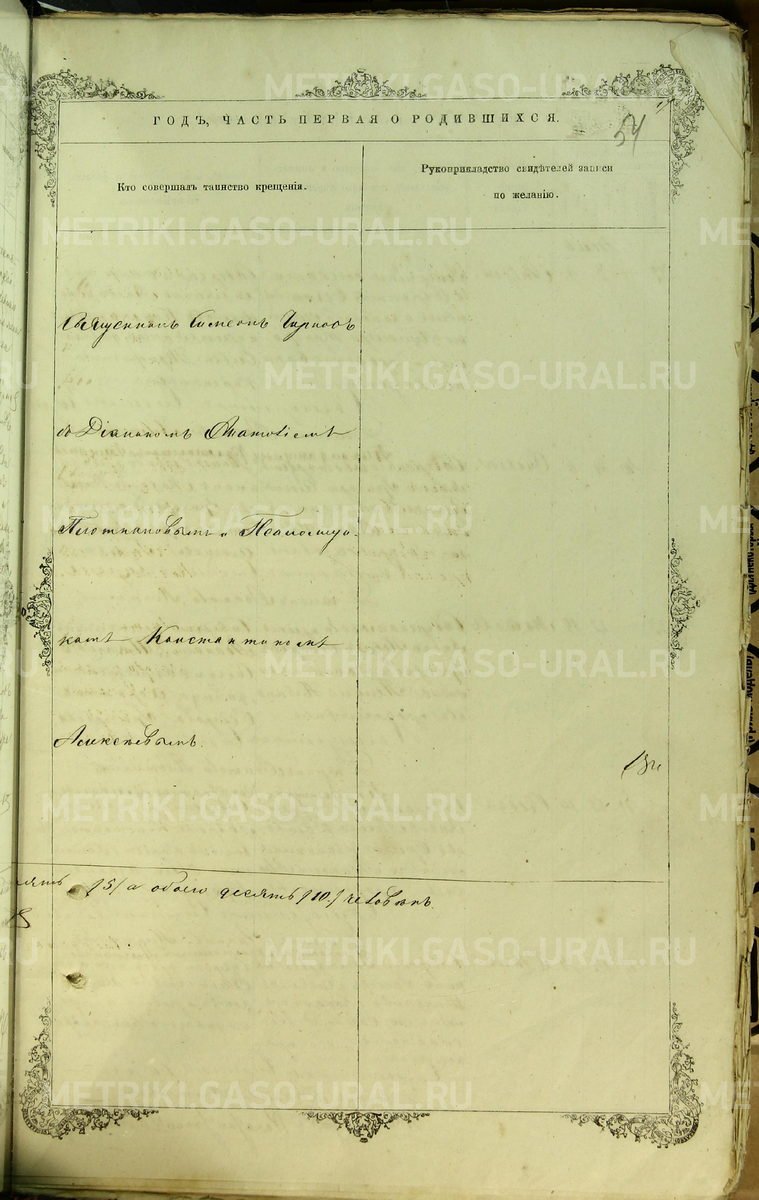 ГОДЪ, ЧАСТЬ ПЕРВАЯ О РОДИВШИХСЯ.
54
Кто совершалъ таинство крещенія.
Рукоприкладство свидѣтелей записи
по желанію.
Священникъ Симеонъ
съ Діакономъ
Плотниковымъ и Псаломщи-
комъ Константиномъ
Алексѣевымъ.
/5/ а обоего десять /10/ человѣкъ
METRIKI.GASO-URAL.RU